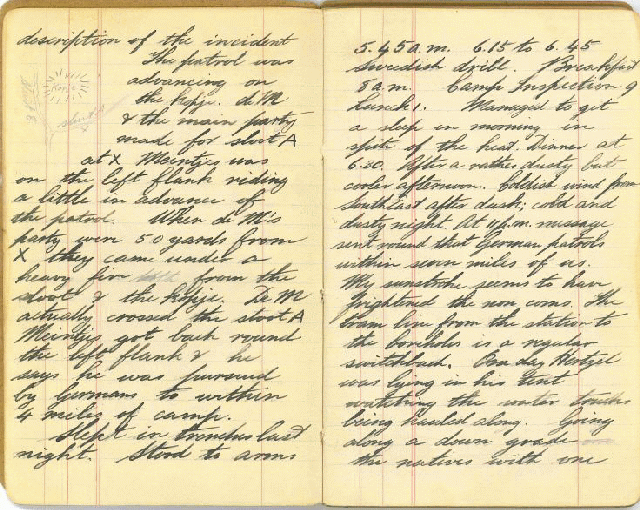 description of the incident
The patrol was
advancing on
the kopje. de M
& the main party
made for sloot A
at X Meintjes was
on the left flank riding
a little in advance of
the patrol. When de M's
party were 50 yards from
X they came under a
heavy fire from the
sloot & the kopje. De M
actually crossed the sloot A
Meintjes got back round
the left flank & he
says he was pursued
by Germans to within
4 miles of camp.
Slept in trenches last
night. Stood to arms
5.45 a.m. 6.15 to 6.45
Swedish drill. Breakfast
8 a.m. Camp Inspection 9
Lunch 1. Managed to get
a sleep in morning in
spite of the heat. Dinner at
6.30. After a rather dusty but
cooler afternoon. Coldish wind from
Southeast after dusk; cold and
dusty night. At 11 p.m. message
sent round that German patrols
within seven miles of us.
My sunstroke seems to have
frightened the non coms. The
tram line from the station to
the boreholes is a regular
switchback. One day Hertzel
was lying in his tent
watching the water
being hauled along. Going
along a down grade
the natives with one